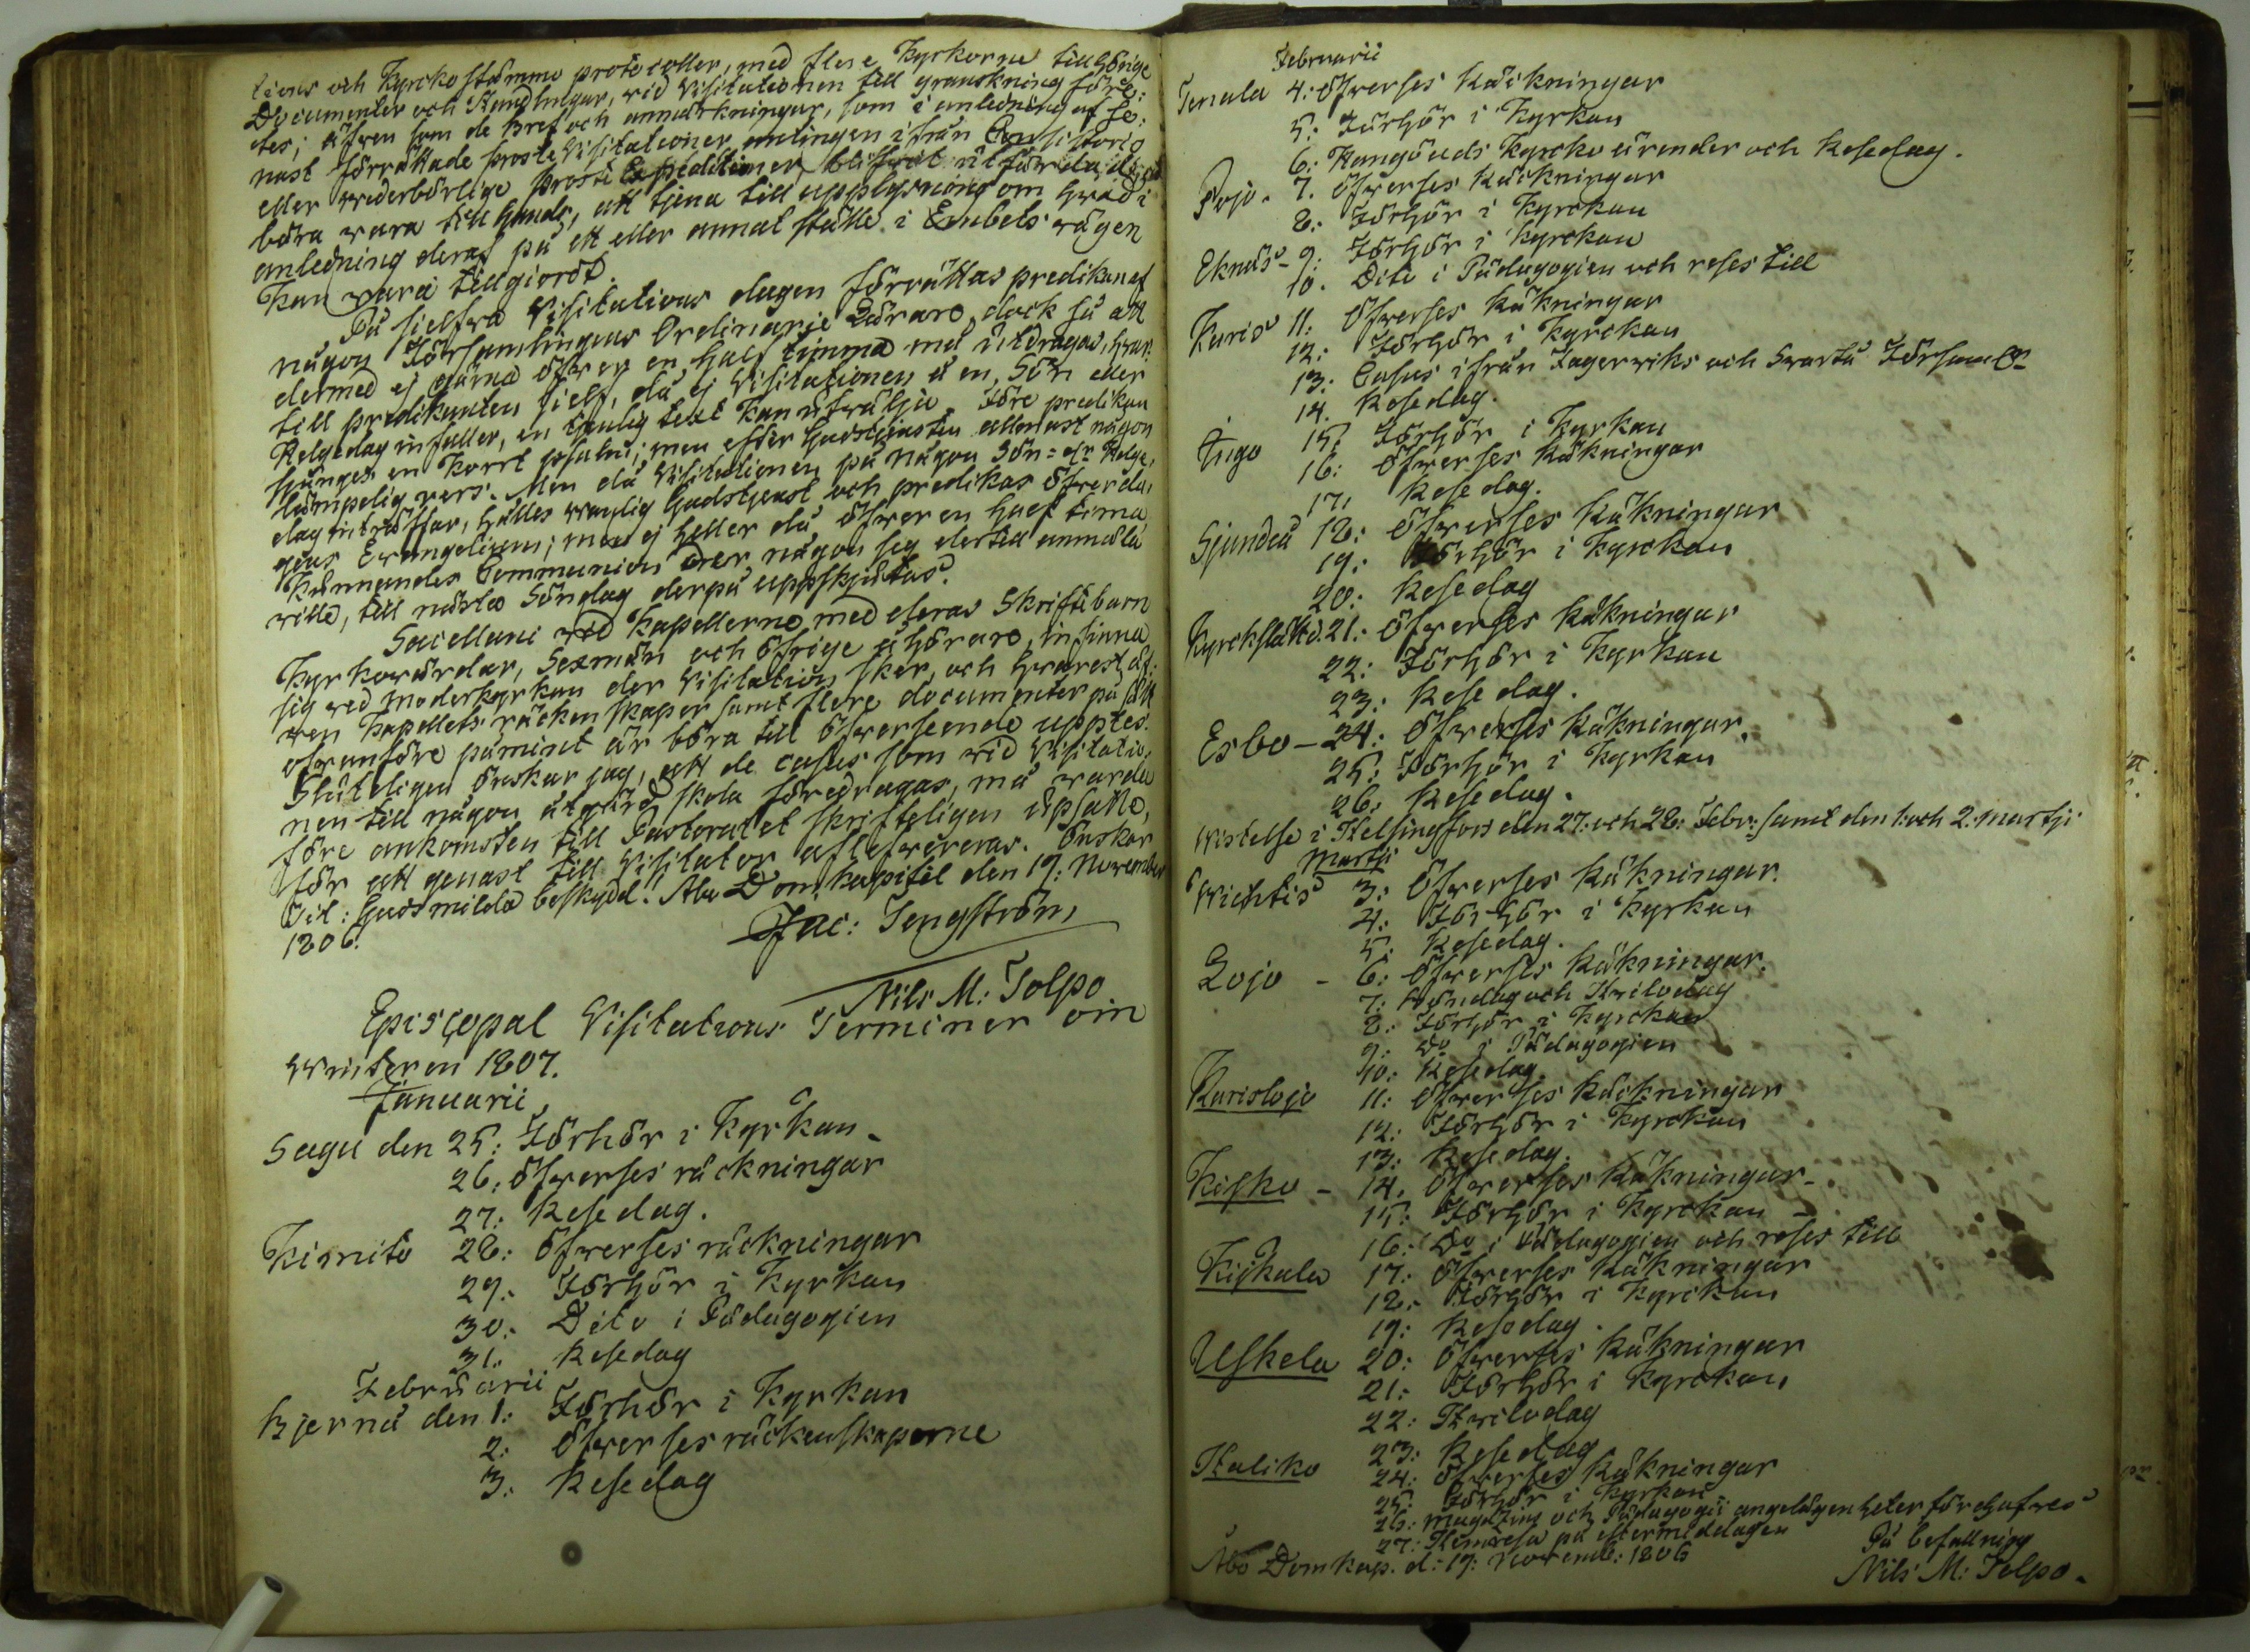 tions och Kyrcko stämmo protocoller, med flere Kyrkorne tillhörige
Documenter och Handlingar, vid Visitationen till granskning före-
tes; äfven som de Bref och anmärkningar, som i anledning af se-
nast förrättade Prosts Visitationer antingen ifrån Consistorio
eller vederbörlige Prosts Expeditioner blifvit utfärdade,
böra vara till hands, att tjena till upplysning om hvad i
anledning deraf på ett eller annat ställe i Embets vägen
kan vara tillgiordt.
På sielfva Visitations dagen förrättas predikan af
någon Församlingens Ordinarie Lärare, dock så att
dermed ej gärna öfver en half timma må utdragas, hvar-
till predikanten sielf, då ej Visitationen å en Sön eller
Helgedag infaller, en tjenlig text kan utvälja. Före predikan
sjunges en kort psalm; men efter Gudstjensten allenast någon
lämpelig vers. Men då Visitationen på någon Sön= elr Helge-
dag inträffar, hålles vanlig Gudstjenst och predikas öfver da-
gens Evangelium; men ej heller då öfver en half tima,
kunnandes Communion der någon sig dertill anmäla
ville, till nästa Söndag derpå uppskjutas.
Sacellani vid Kapellerne med deras Skriftebarn
Kyrkovärdar, Sexmän och öfrige åhörare, infinna
sig vid Moderkyrkan der Visitation sker, och hvarest äf-
ven Kapellets räckenskaper samt flere documenter på sätt
ofvanföre påmint är böra till öfverseende upptes.
Sluteligen önskar jag, att de casus som vid Visitatio-
nen till någon åtgärd skola föredragas, må varda
före ankomsten till Pastoratet skrifteligen upsatte,
för att genast till Visitator aflefvereras. Önskar
Tit: Guds milda beskydd. Åbo Domkapitel den 19: November
1806.
Jac: Tengström,
Nils M: Tolpo
Episcopal Visitations Terminer om
Vinteren 1807.
Januarii
Sagu den 25: Förhör i Kyrkan
26: öfverses räckningar
27: Resedag.
Kimito 28: Öfverses räckningar
29: Förhör i Kyrkan
30: Dito i Pädagogien
31: Resedag
Februarii
Bjerna den 1: Förhör i Kyrkan
2: Öfverses räckenskaperne
3: Resedag
Februarii
Tenala 4: Öfverses Räckningar
5: Förhör i Kyrkan
6: Hangöudds Kyrcko ärender och Resedag.
Pojo. 7. Öfverses Räckningar
8: Förhör i Kyrckan
Eknäs - 9: Förhör i Kyrckan
10. Dito i Pädagogien och reses till
Karis 11: Öfverses Räkningar
12: Förhör i Kyrckan
13: Casus ifrån Fagerviks och Svartå Församl:
14. Resedag.
Ingo 15: Förhör i Kyrkan
16: Öfverses Räkningar
17, Resedag.
Sjundeå 18: Öfverses Räkningar
19: Förhör i Kyrckan
20: Resedag
Kyrckslätt d. 21: Öfverses Räkningar
22: Förhör i Kyrkan
23: Resedag.
Esbo - 24: Öfverses Räkningar.
25: Förhör i Kyrkan
26: Resedag.
Vistelse i Helsingfors den 27: och 28: Febr: samt den 1: och 2. Martji
Martji
Wichtis 3: Öfverses Räkningar.
4: Förhör i Kyrkan
5: Resedag.
Lojo - 6: Öfverses Räkningar.
7: Söndag och Hvilodag
8: Förhör i Kyrckan
9: Do i Pädagogien
10: Resedag.
Karislojo 11: Öfverses Räckningar
12: Förhör i Kyrckan
13: Resedag.
Kisko - 14. Öfverses Räkningar
15: Förhör i Kyrckan
16: Do i Pädagogien och reses till
Kiskala 17: Öfverses Räkningar
18: Förhör i Kyrckan
19: Resedag.
Uskela 20: Öfverses Räkningar
21: Förhör i Kyrckan
22: Hvilodag
23: Resedag
Haliko 24: Öfverses Räkningar
25: Förhör i Kyrkan
26: Magazins och Pädagogii angelägenheter förehafves
27: Hemresa på eftermiddagen
Åbo Domkap. d: 19: Novemb: 1806
På befallning
Nils M: Tolpo.